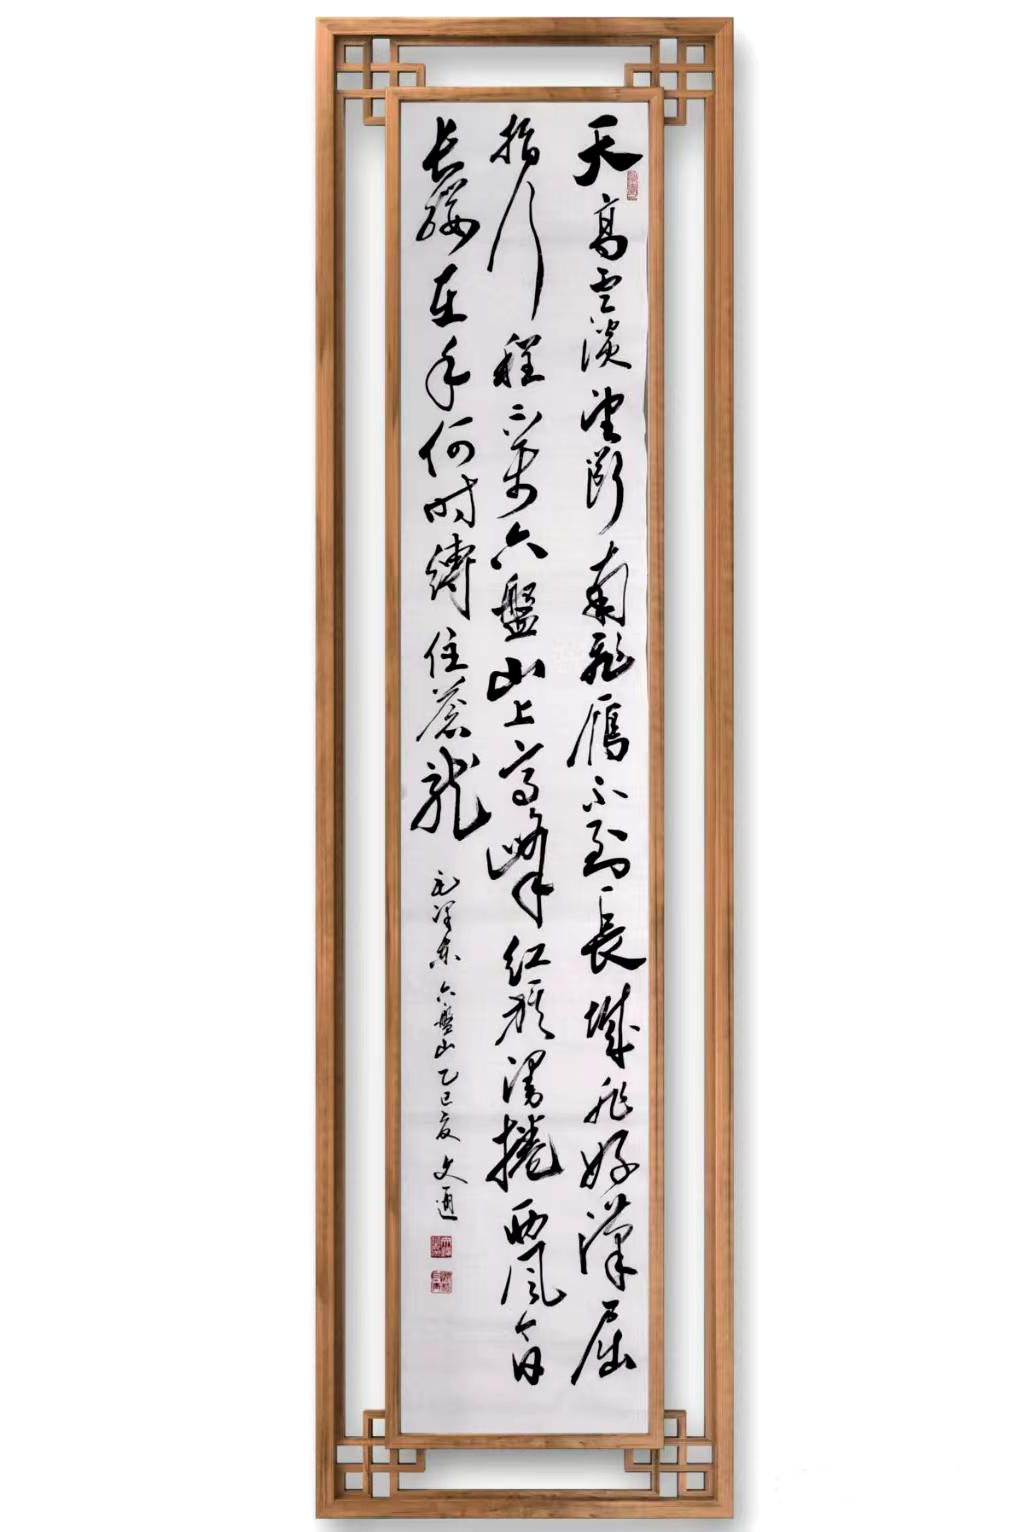 天高云淡望斷南飛雁不到長城非好漢屈
指行程二萬六盤山上高峰紅旗漫捲西風今日
长纓在手何时縛住蒼龍 毛泽东六盤山乙巳夏文通